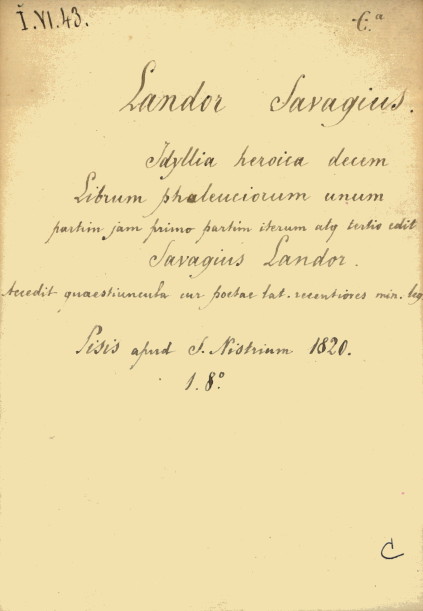 I.VI.43.
C.a
Landor Savagius.
Idyllia heroica decem
Librum phaleuciorum unum
partim jam primo partim iterum atq tertio edit
Savagius Landor.
Accedit quaestiuncula cur poetae lat. recentiores min. leg
Pisis apud S. Nistrium 1820.
1. 8°
C